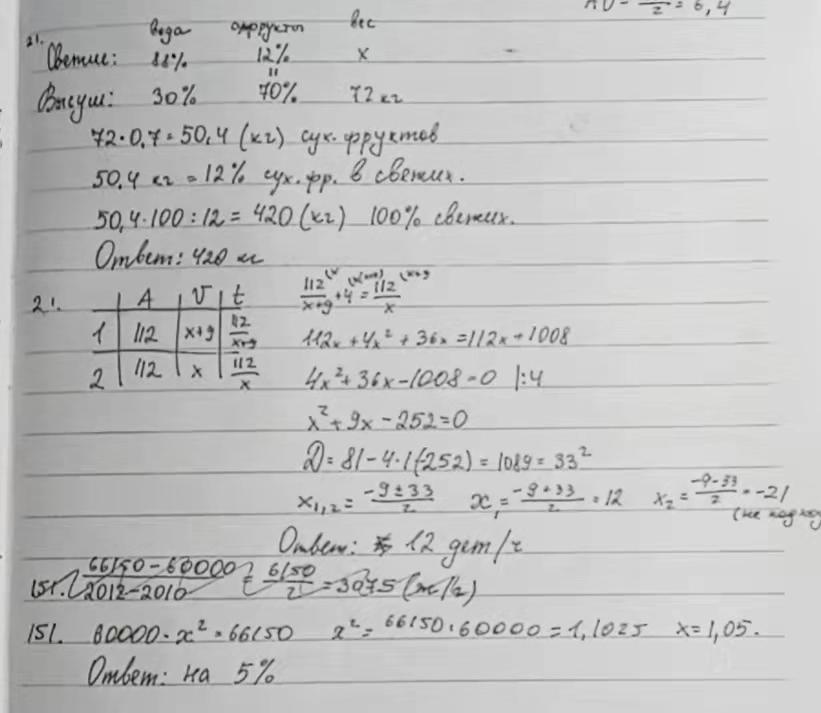 AD = — 2 = 6,4
вода сух. фрукты вес
21.
Свежие: 88% 12% x
Высуш: 30% 70% 72 кг
72·0,7=50,4 (кг) сух. фруктов
50,4 кг = 12% сух. фр. в свежих.
50,4·100:12 = 420 (кг) 100% свежих.
Ответ: 420 кг
21. A V t
1 112 x+9 112/x+9
2 112 x 112/x
112/x+9 + 4 = 112/x
112x + 4x² + 36x = 112x + 1008
4x² + 36x - 1008 = 0 |:4
x² + 9x - 252 = 0
D = 81 - 4·1(-252) = 1089 = 33²
x₁,₂ = -9±33/2 x₁ = -9+33/2 = 12 x₂ = -9-33/2 = -21
(не подход
Ответ: 12 дет/ч
151. 66150-60000/2012-2010 = 6150/2 = 3075
151. 60000·x² = 66150 x² = 66150:60000 = 1,1025 x = 1,05.
Ответ: на 5%